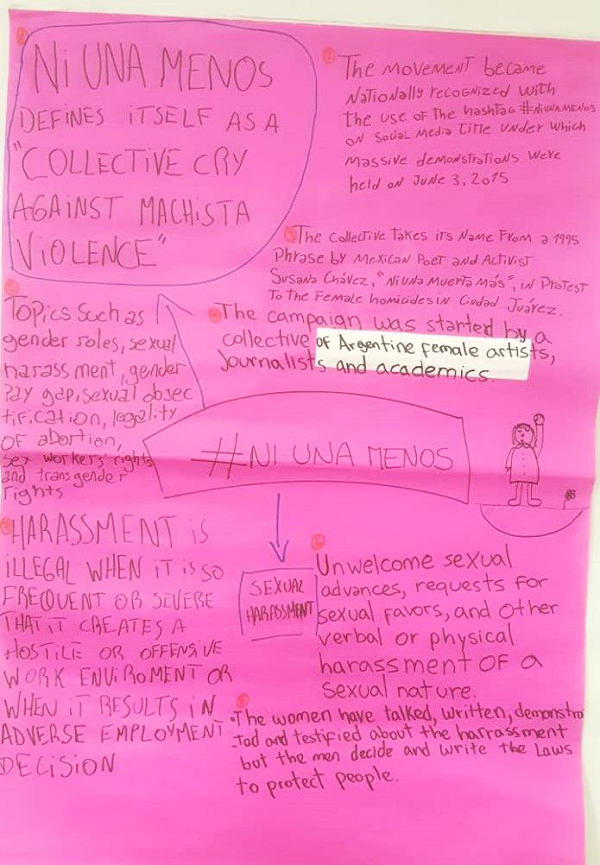 NI UNA MENOS
DEFINES ITSELF AS A
"COLLECTIVE CRY
AGAINST MACHISTA
VIOLENCE"
The MOVEMENT became
NATIONALLY RECOGNIZED WITH
the use of the hashtag #NIUNAMENOS
ON Social Media Title under which
MASSIVE DEMONSTRATIONS WERE
held on June 3, 2015
The Collective Takes its Name From a 1995
Phrase by Mexican Poet and Activist
Susana Chávez, "Ni una Muerta Más", in Protest
To the Female homicides in Ciudad Juárez.
The campaign was started by a
collective of Argentine female artists,
Journalists and academics.
Topics Such as
gender roles, sexual
harassment, gender
Pay gap, sexual objec
tification, legality
OF abortion,
sex workers' rights
and transgender
rights
#NI UNA MENOS
HARASSMENT is
iLLEGAL WHEN IT IS SO
FREQUENT OR SEVERE
THAT IT CREATES A
HOSTILE OR OFFENSIVE
WORK ENVIROMENT OR
WHEN IT RESULTS IN
ADVERSE EMPLOYMENT
DECISION
SEXUAL
HARASSMENT
Unwelcome sexual
advances, requests for
sexual favors, and other
verbal or physical
harassment OF a
Sexual nature.
The women have talked, written, demonstra
-tad and testified about the harrassment
but the men decide and write the Laws
to protect people.